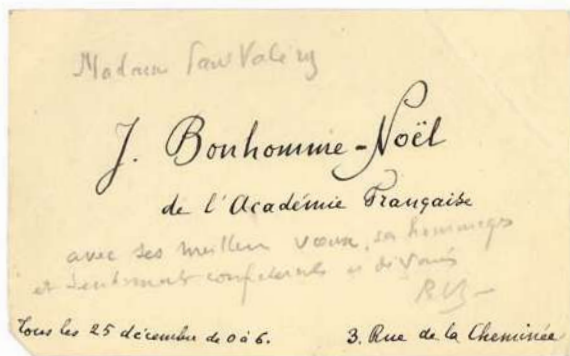 Madame Paul Valéry
J. Bonhomme-Noël
de l'Académie Française
avec ses meilleurs vœux, ses hommages
et sentiments confidents et dévoués
Tous les 25 décembre de 0 à 6.
3. Rue de la Cheminée